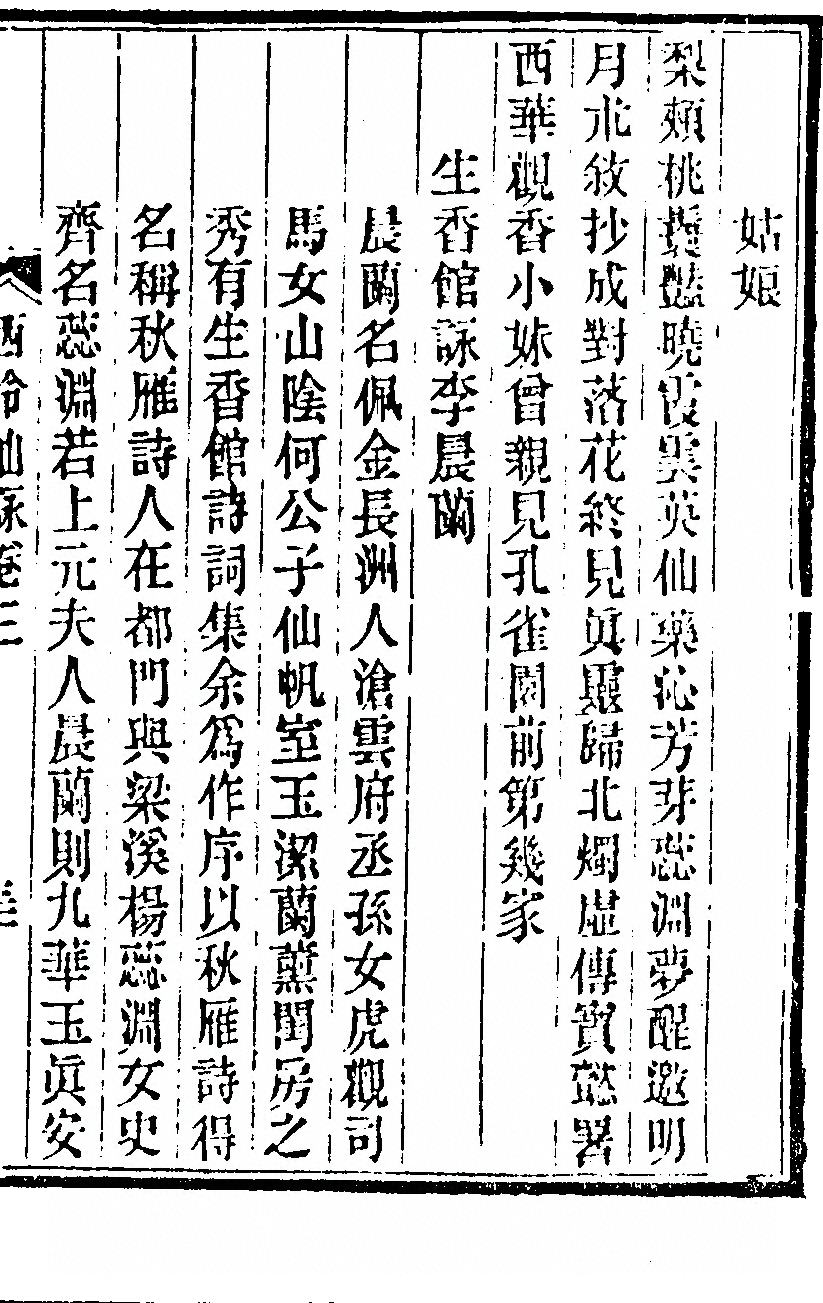 姑娘
梨頰桃豔曉霞雲英仙藥沁芳芽蕊淵夢醒邀明
月氷敘抄成對落花終見眞靈歸北燭虛傳寶懿署
西華觀香小妹曾親見孔雀園前第幾家
生香館詠李晨蘭
晨蘭名佩金長洲人滄雲府丞孫女虎觀司
馬女山陰何公子仙帆室玉潔蘭薰閨房之
秀有生香館詩詞集余爲作序以秋雁詩得
名稱秋雁詩人在都門與梁溪楊蕊淵女史
齊名蕊淵若上元夫人晨蘭則九華玉眞安
西泠仙詠卷三